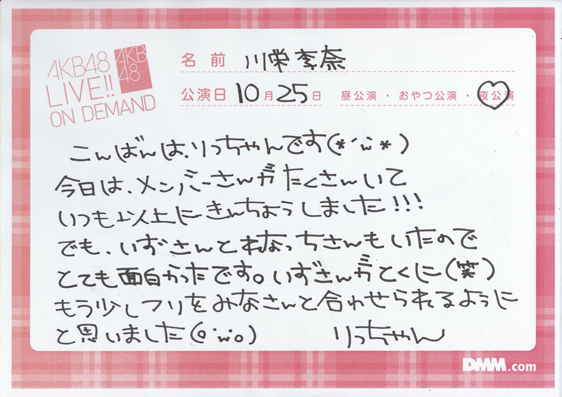 AKB48
LIVE!!
ON DEMAND
AKB
48
名前 川栄李奈
公演日 10月25日 昼公演・おやつ公演・夜公演
こんばんは、りっちゃんです(*´ω`*)
今日は、メンバーさんがたくさんいて
いつも以上にきんちょうしました!!!
でも、いずさんとねなっちさんもいたので
とても面白かったです。いずさんがとくに(笑)
もう少しフリをみなさんと合わせられるように
と思いました(o´ω`o) りっちゃん
DMM.com